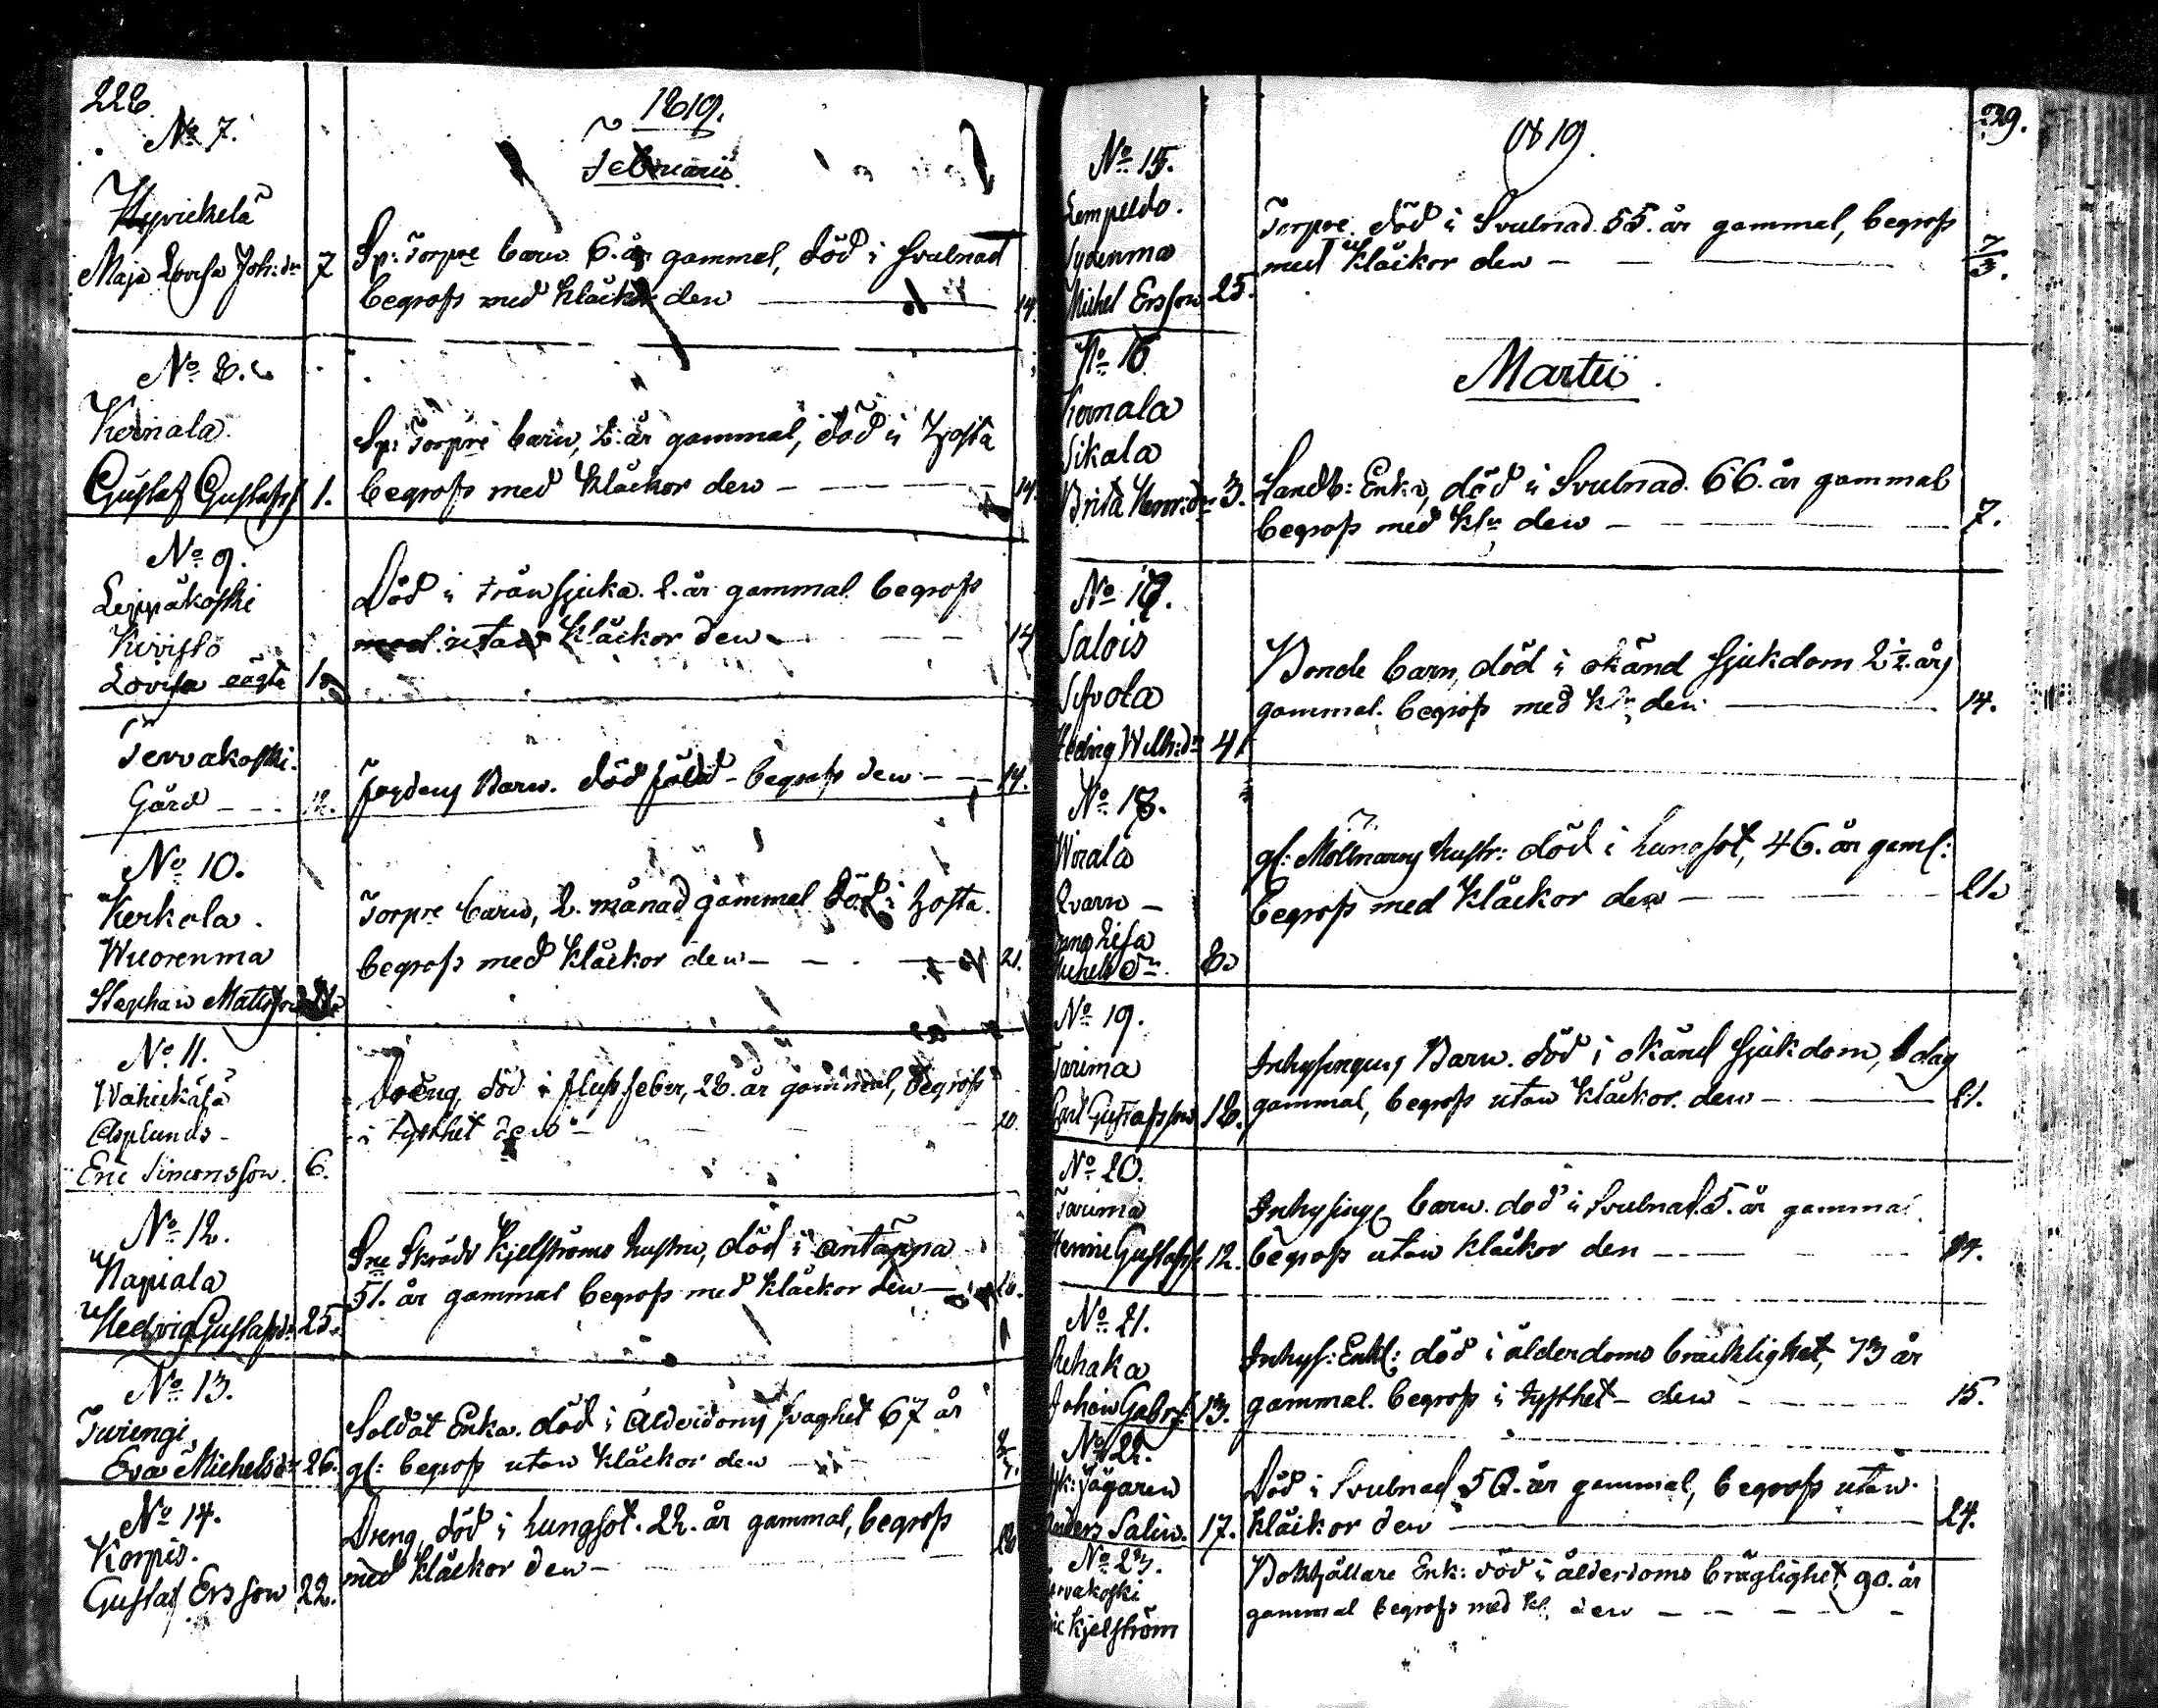 228.
1819.
Februarii
No 7.
Hyvickelä
Maja Lovisa Joh:dr 7
Sp: Torpre barn 6. år gammal, död i Svulnad
begrofs med kläckor den — 14.
No 8.
Kernala
Gustaf Gustafss 1.
Sp: Torpre barn, 2. år gammal, död i hosta
begrofs med kläckor den — 14.
No 9.
Leppäkoski
Kuristo
Lovisa oägta 1.
Död i trånsjuka. 2. år gammal begrofs
med utan kläckor den — 14
Tervakoski.
Gård — 12.
Barn. död född — begrofs den — 14.
No 10.
Kerkola.
Wuorenma
Stephan Mattsson
Torpre barn, 2. månad gammal död i hosta.
begrofs med kläckor den — 21.
No 11.
Asplunds
Eric Simonsson. 6.
Dreng, död i flufsfeber, 28. år gammal, begrofs
i tysthet den — 20.
No 12.
Napiala
Hedvig Gustafsdr 25.
Kjelströms hustru, död i
51. år gammal begrofs med kläckor den —
No 13.
Turengi
Eva Michelsdr 26.
Soldat Enka. död i ålderdoms svaghet 67 år
gl: begrofs utan kläckor den —
No 14.
Korpis.
Gustaf Ersson 22.
Dreng, död i lungsot. 22. år gammal, begrofs
med kläckor den — 28
1819.
229.
No 15.
Lempeldo.
Sydenma
Michel Ersson 25.
Torpre. död i Svulnad. 55. år gammal, begrofs
med kläckor den — 7/3.
Martii.
No 16
Kernala
Sikala
Brita Henr:dr 3.
Landb: Enka, död i Svulnad. 66. år gammal
begrofs med klr den — 7.
No 17.
Salois
Hedvig Wilh:dr 4
Bonde barn, död i okänd sjukdom 2 1/2 års
gammal. begrofs med klr den — 14.
No 18.
Worala
Qvarn —
Lisa
Michelsdr. 8.
gl: Möllnarens hustr: död i lungsot, 46. år gaml:
begrofs med kläckor den — 21.
No 19.
Tarima
Carl Gustafsson 18.
Inhysinges Barn. död i okänd sjukdom, 1 dag
gammal, begrofs utan kläckor. den — 21.
No 20.
Tarima
Henric Gustafss 12.
Inhysinge barn. död i Svulnad. 5. år gammal.
begrofs utan kläckor den —
No 21.
Rehaka
Johan Gabr: 13.
Inhys: Enkl: död i ålderdoms bräcklighet, 73 år
gammal. begrofs i tysthet — den — 15.
No 22.
Jägaren
Anders Salin. 17.
Död i Svulnad 50. år gammal, begrofs utan
kläckor den — 24.
No 23.
Tervakoski
Kjelström
Bokhållare Enk: död i ålderdoms bräglighet, 90. år
gammal begrofs med kl. den —